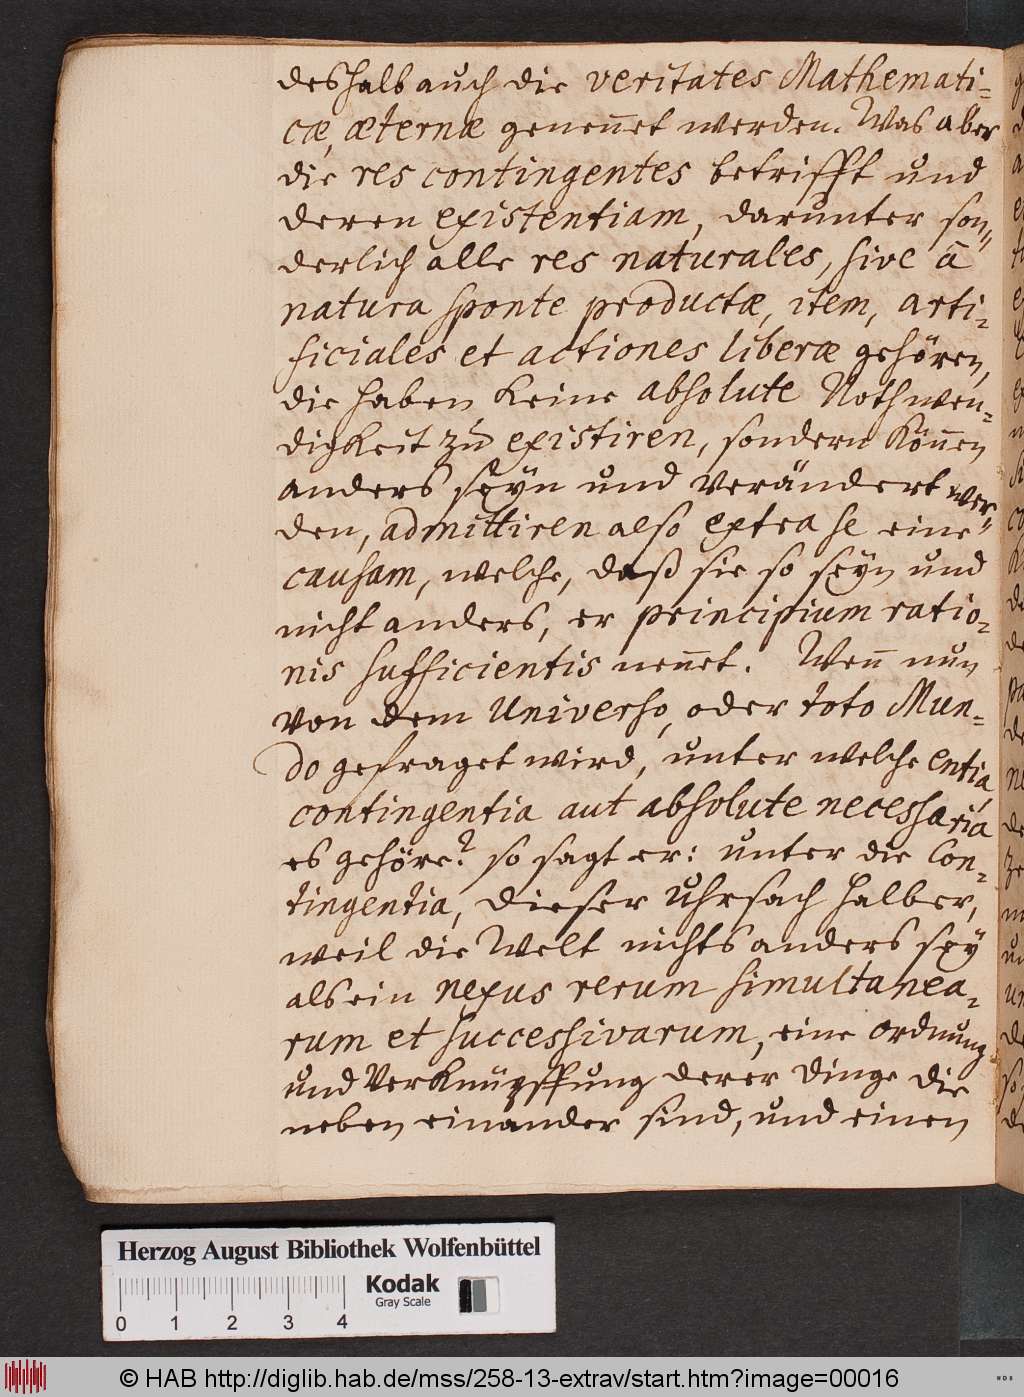 deshalb auch die veritates Mathemati-
cæ, æternæ genennet werden. Was aber
die res contingentes betrifft und
deren existentiam, darunter son-
derlich alle res naturales, sive â
natura sponte productæ, item, arti-
ficiales et actiones liberæ gehören,
die haben keine absolute Nothwen-
digkeit zu existiren, sondern können
anders seyn und verändert wer-
den, admittiren also extra se eine
causam, welche, daß sie so seyn und
nicht anders, er principium ratio-
nis sufficientis nennet. Wenn nun
von dem Universo, oder toto Mun-
do gefraget wird, unter welche entia
contingentia aut absolute necessaria
es gehöre? so sagt er: unter die Con-
tingentia, dieser Uhrsach halber,
weil die Welt nichts anders sey
als ein nexus rerum simultanea-
rum et successivarum, eine ordnung
und Verknüpffung derer dinge die
neben einander sind, und einen
Herzog August Bibliothek Wolfenbüttel
Kodak
Gray Scale
0 1 2 3 4
© HAB http://diglib.hab.de/mss/258-13-extrav/start.htm?image=00016